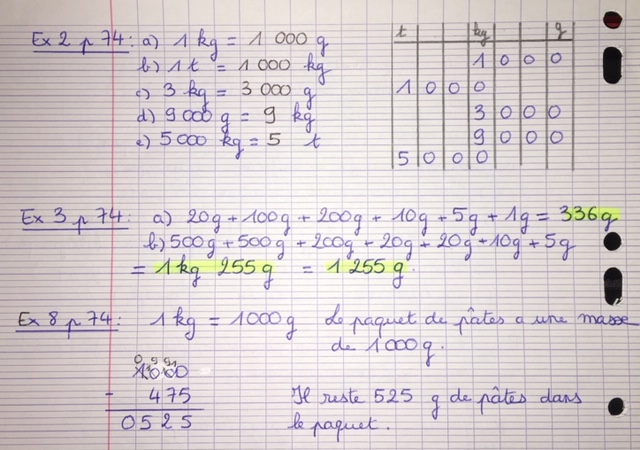 Ex 2 p 74: a) 1 kg = 1 000 g
b) 1 t = 1 000 kg
c) 3 kg = 3 000 g
d) 9 000 g = 9 kg
e) 5 000 kg = 5 t
t kg g
1 0 0 0
1 0 0 0
3 0 0 0
9 0 0 0
5 0 0 0
Ex 3 p 74: a) 20g + 100g + 200g + 10g + 5g + 1g = 336g
b) 500g + 500g + 200g + 20g + 20g + 10g + 5g
= 1 kg 255 g = 1 255 g.
Ex 8 p 74: 1 kg = 1000 g Le paquet de pâtes a une masse
de 1 000 g.
0 9 9 1
1000
- 475
0525
Il reste 525 g de pâtes dans
le paquet.